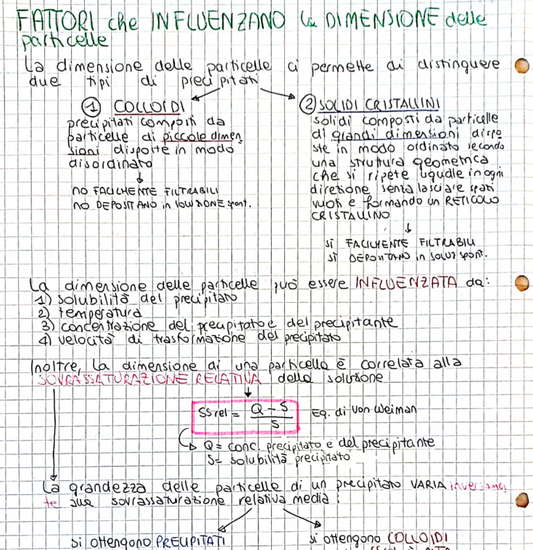 FATTORI che INFLUENZANO la DIMENSIONE delle
particelle
La dimensione delle particelle ci permette di distinguere
due tipi di precipitati
① COLLOIDI
precipitati composti da
particelle di piccole dimen
sioni disposte in modo
disordinato
NO FACILMENTE FILTRABILI
NO DEPOSITANO in soluzione spont.
② SOLIDI CRISTALLINI
solidi composti da particelle
di grandi dimensioni dispo
ste in modo ordinato secondo
una struttura geometrica
che si ripete uguale in ogni
direzione senza lasciare spazi
vuoti e formando un RETICOLO
CRISTALLINO
sì FACILMENTE FILTRABILI
sì DEPOSITANO in soluz spont.
La dimensione delle particelle può essere INFLUENZATA da:
1) solubilità del precipitato
2) temperatura
3) concentrazione del precipitato e del precipitante
4) velocità di trasformazione del precipitato
Inoltre, la dimensione di una particella è correlata alla
SOVRASSATURAZIONE RELATIVA della soluzione
SS rel = Q - S / S Eq. di Von Weiman
Q = conc. precipitato e del precipitante
S = solubilità precipitato
La grandezza delle particelle di un precipitato VARIA inversamen
te sua sovrassaturazione relativa media:
si ottengono PRECIPITATI
si ottengono COLLOIDI